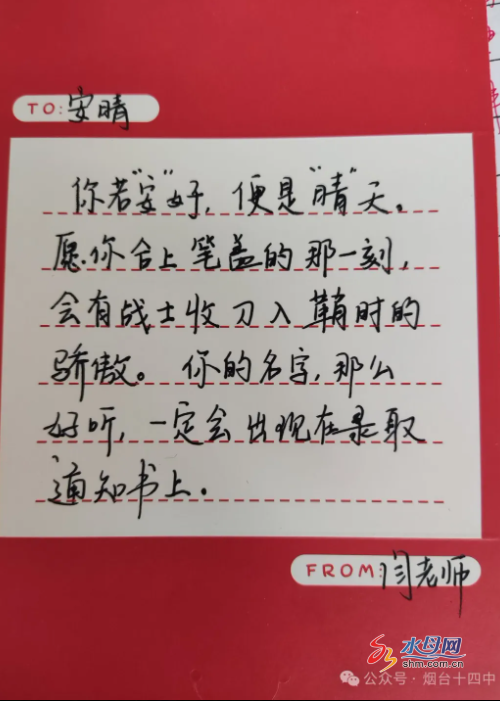 TO: 安晴
你若"安"好，便是"晴"天。
愿你合上笔盖的那一刻，
会有战士收刀入鞘时的
骄傲。你的名字，那么
好听，一定会出现在录取
通知书上。
FROM: 闫老师
水母网
shm.com.cn
公众号·烟台十四中